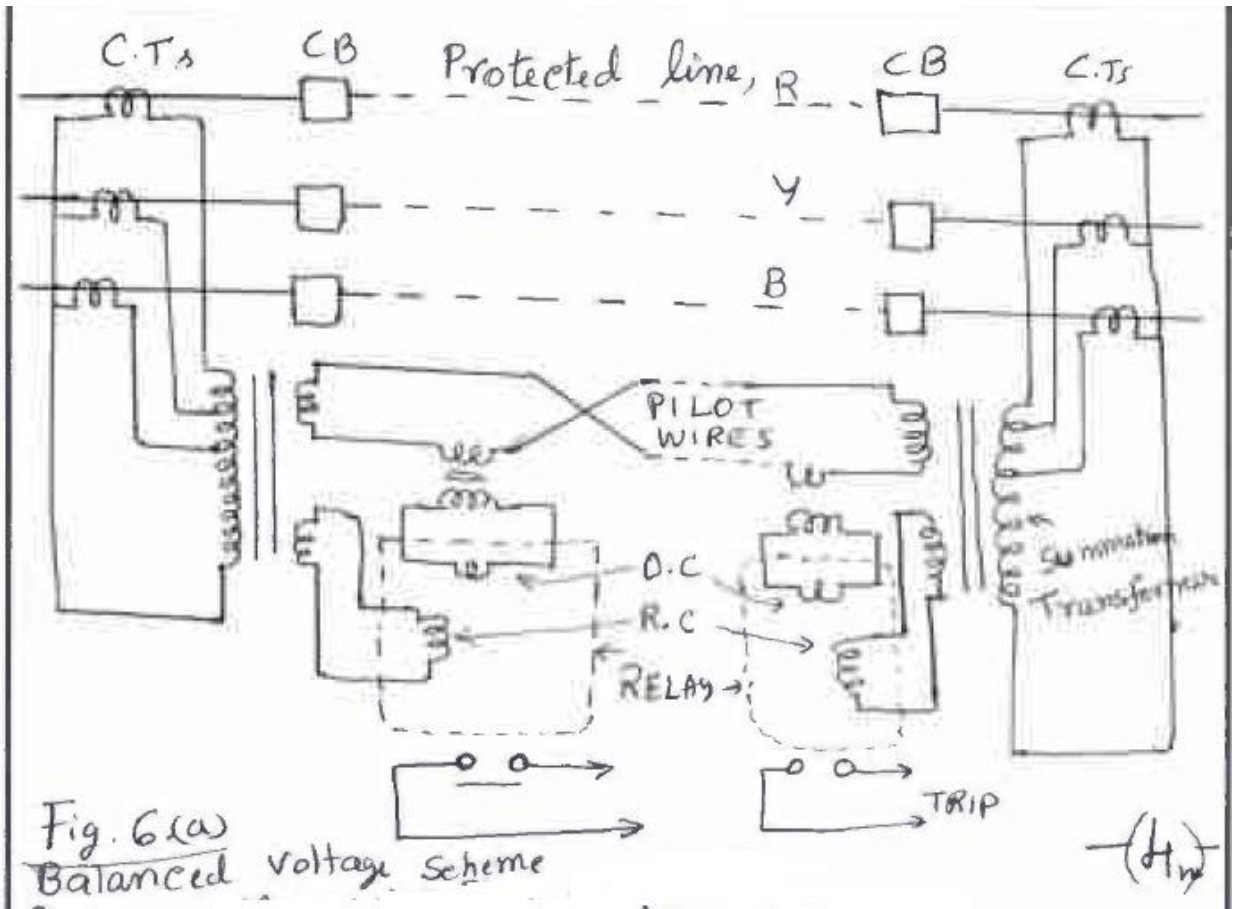 C.Ts
CB
Protected line, R
CB
C.Ts
Y
B
PILOT
WIRES
O.C
R.C
RELAY
Summation
Transformer
TRIP
Fig. 6(a)
Balanced voltage scheme